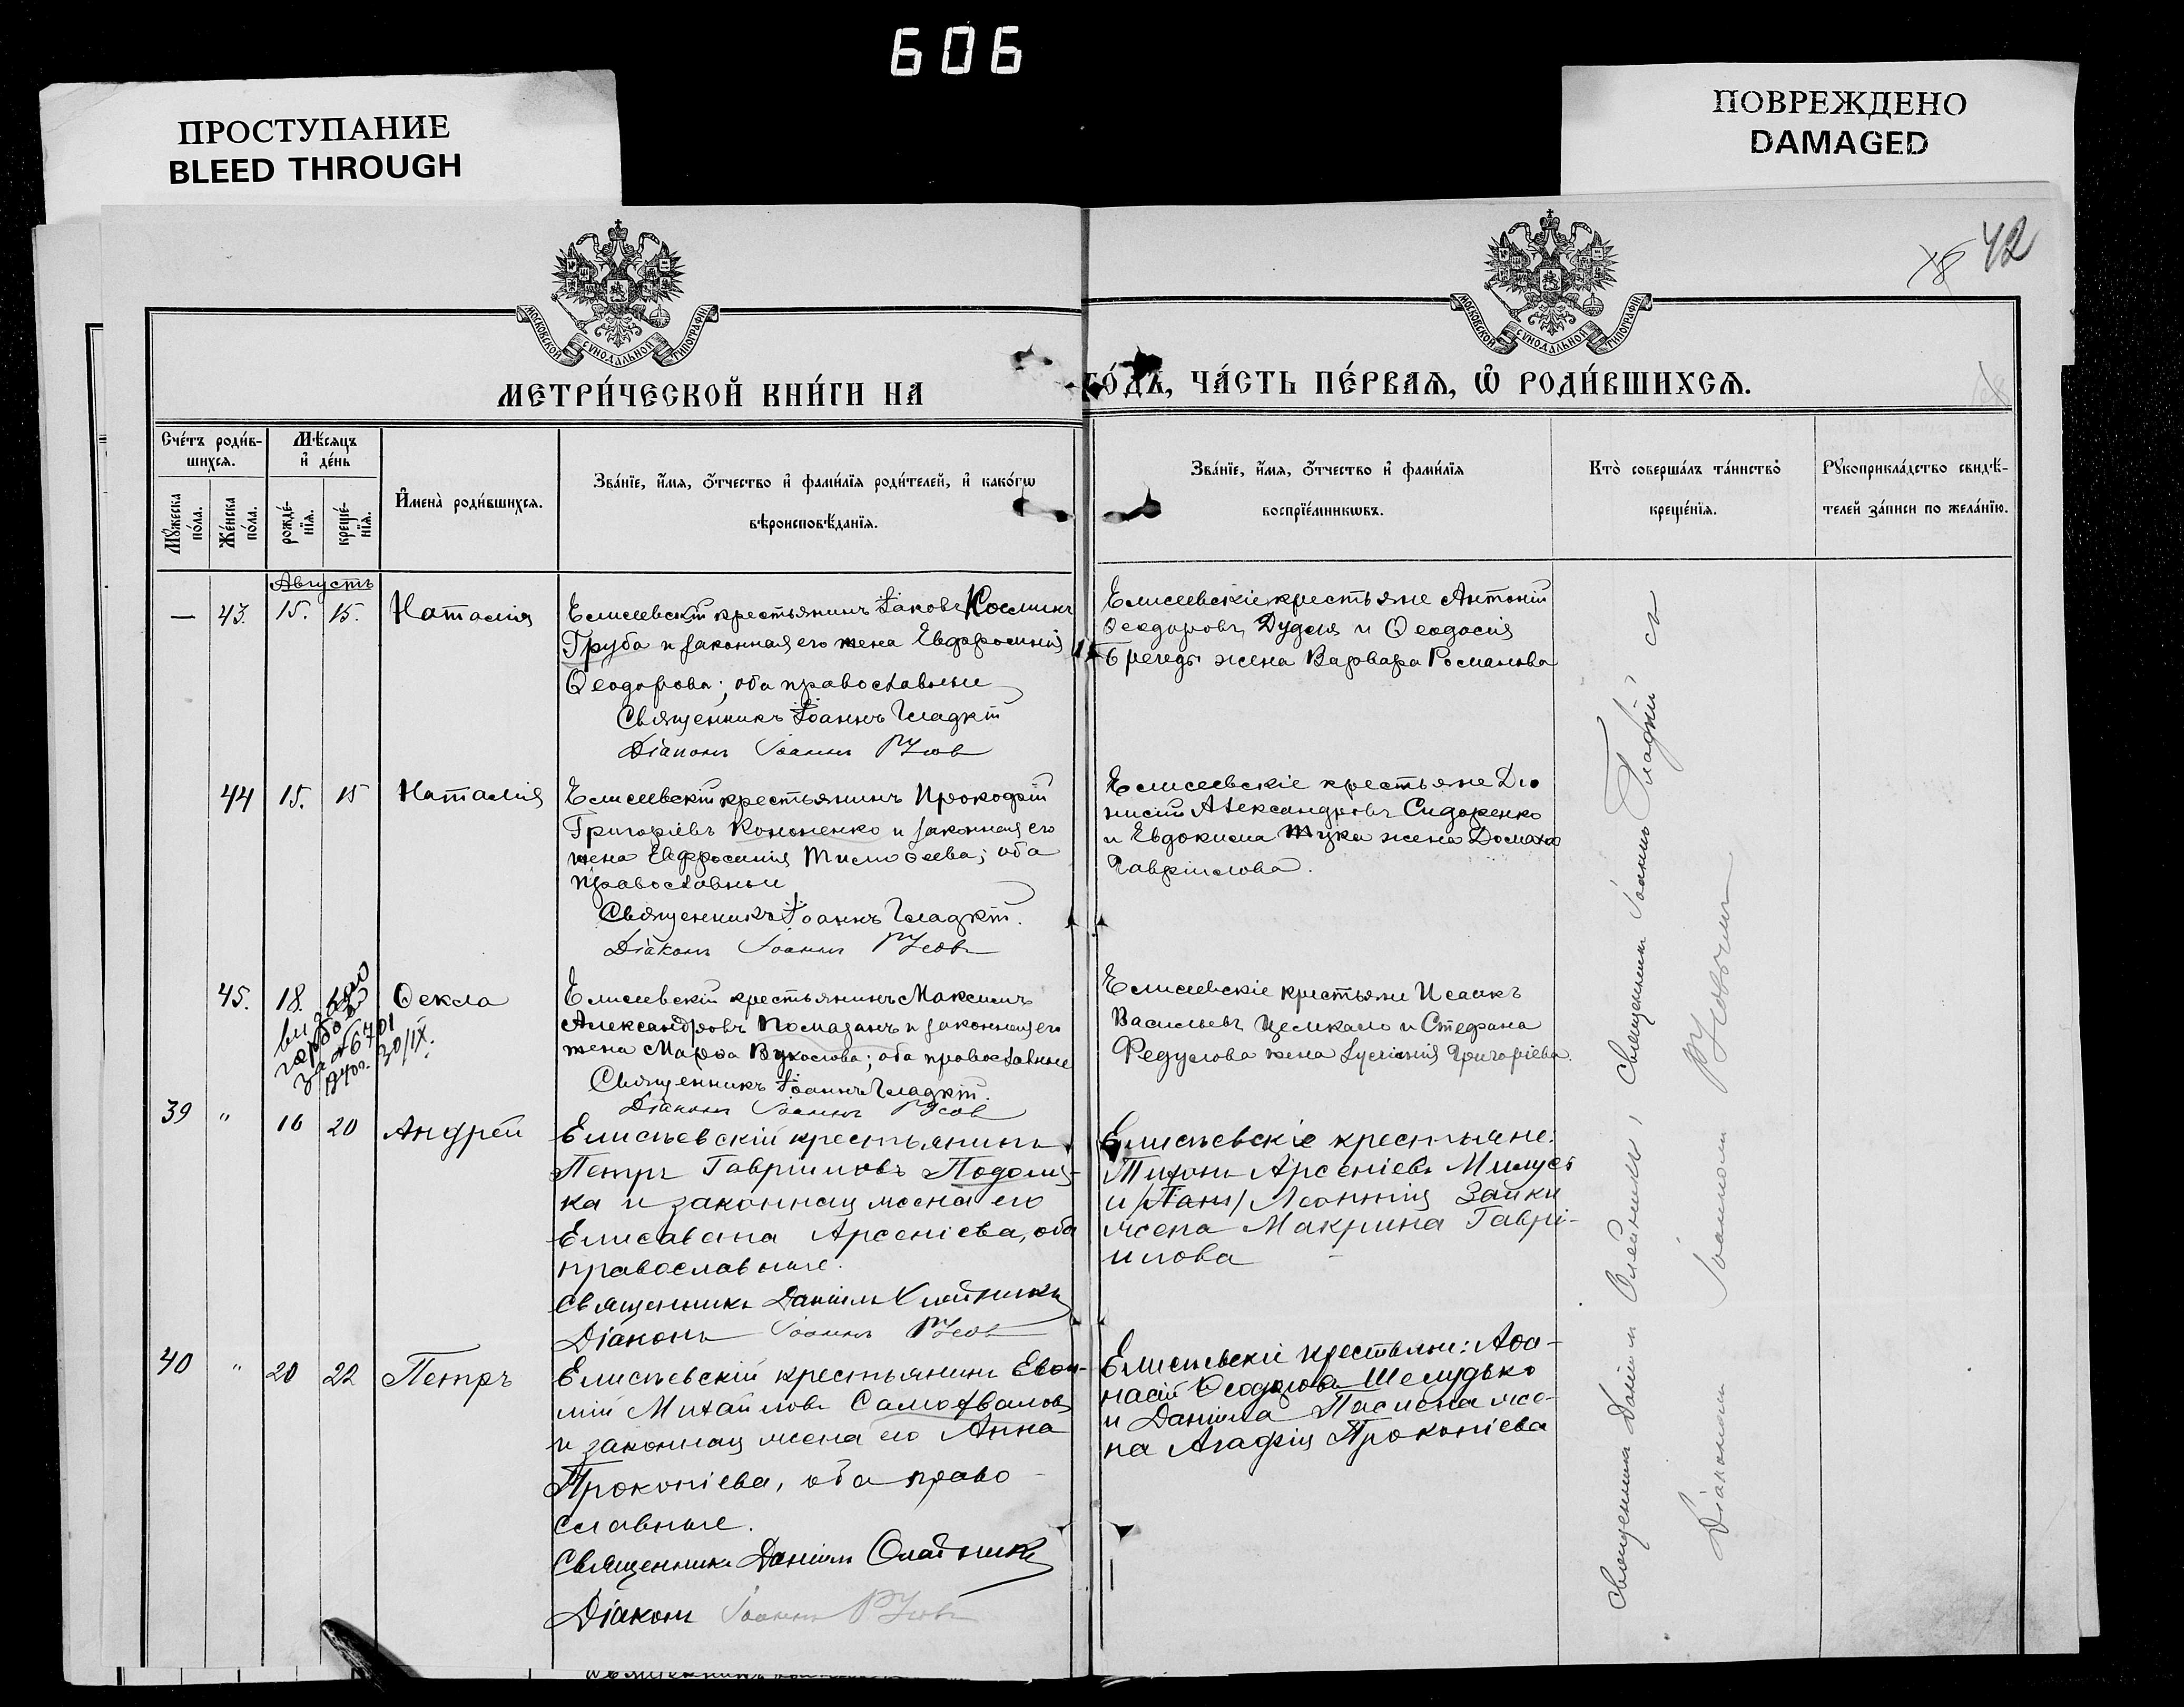 606
ПРОСТУПАНИЕ
BLEED THROUGH
ПОВРЕЖДЕНО
DAMAGED
42
МОСКОВСКОЙ СѴНОДАЛЬНОЙ ТИПОГРАФІИ
МОСКОВСКОЙ СѴНОДАЛЬНОЙ ТИПОГРАФІИ
МЕТРИ́ЧЕСКОЙ КНИ́ГИ НА
ГО́ДЪ, ЧА́СТЬ ПЕ́РВАѦ, Ѡ҆ РОДИ́ВШИХСѦ.
Сче́тъ роди́в-
шихсѧ.
Мꙋ́жеска по́ла.
Же́нска по́ла.
Мѣ́сѧцъ
и҆ де́нь
рожде́-
нїѧ.
креще́-
нїѧ.
И҆мена̀ роди́вшихсѧ.
Зва́нїе, и҆́мѧ, ѻ҆́тчество и҆ фами́лїѧ роди́телей, и҆ како́гѡ
вѣроисповѣ́данїѧ.
Зва́нїе, и҆́мѧ, ѻ҆́тчество и҆ фами́лїѧ
воспрїе́мникѡвъ.
Кто̀ соверша́лъ та́инство
креще́нїѧ.
Рꙋкоприкла́дство свидѣ́-
телей за́писи по жела́нїю.
Августъ
— 43. 15. 15. Наталія
Елисеевскій крестьянинъ Іаковъ Косминъ
Груба и законная его жена Евфросинія
Ѳеодорова; оба православные
Священникъ Іоаннъ Гладкій
Діаконъ Іоаннъ Усовъ
Елисеевскіе крестьяне Антоній
Ѳеодоровъ Дудка и Ѳеодосія
жена Варвара Романова
44 15. 15 Наталія
Елисеевскій крестьянинъ Прокофій
Григоріевъ Кононенко и законная его
жена Евфросинія Тимоѳеева; оба
православные
Священникъ Іоаннъ Гладкій.
Діаконъ Іоаннъ Усовъ
Елисеевскіе крестьяне Діо
нисій Александровъ Сидоренко
и Евдокима жена Домаха
Гавріилова.
45. 18. Ѳекла
за № 6701
30/IX.
Елисеевскій крестьянинъ Максимъ
Александровъ Помазанъ и законная его
жена Марѳа Вуколова; оба православные
Священникъ Іоаннъ Гладкій.
Діаконъ Іоаннъ Усовъ
Елисеевскіе крестьяне Исаакъ
Васильевъ Цемкало и Стефана
Редулова жена Іуліанія Григоріева.
39 " 16 20 Андрей
Елисѣевскій крестьянинъ
Петръ Гавріиловъ Подоля-
ка и законная жена его
Елисавета Арсеніева, оба
православные.
Священникъ Даніилъ Олейникъ
Діаконъ Іоаннъ Усовъ
Елисѣевскіе крестьяне:
Тихонъ Арсеніевъ
и Леонтія Зайки
жена Макрина Гаврі-
илова
40 " 20 22 Петръ
Елисѣевскій крестьянинъ Евѳи-
мій Михайловъ Самохваловъ
и законная жена его Анна
Прокопіева, оба право-
славные.
Священникъ Даніилъ Олейникъ
Діаконъ Іоаннъ Усовъ
Елисѣевскіе крестьяне: Аѳа-
насій Ѳеодоровъ Шелудько
и Даніила жена
на Агафія Прокопіева
Священники Даніилъ Олейникъ и Священникъ Іоаннъ Гладкій съ
Діакономъ Іоанномъ Усовымъ